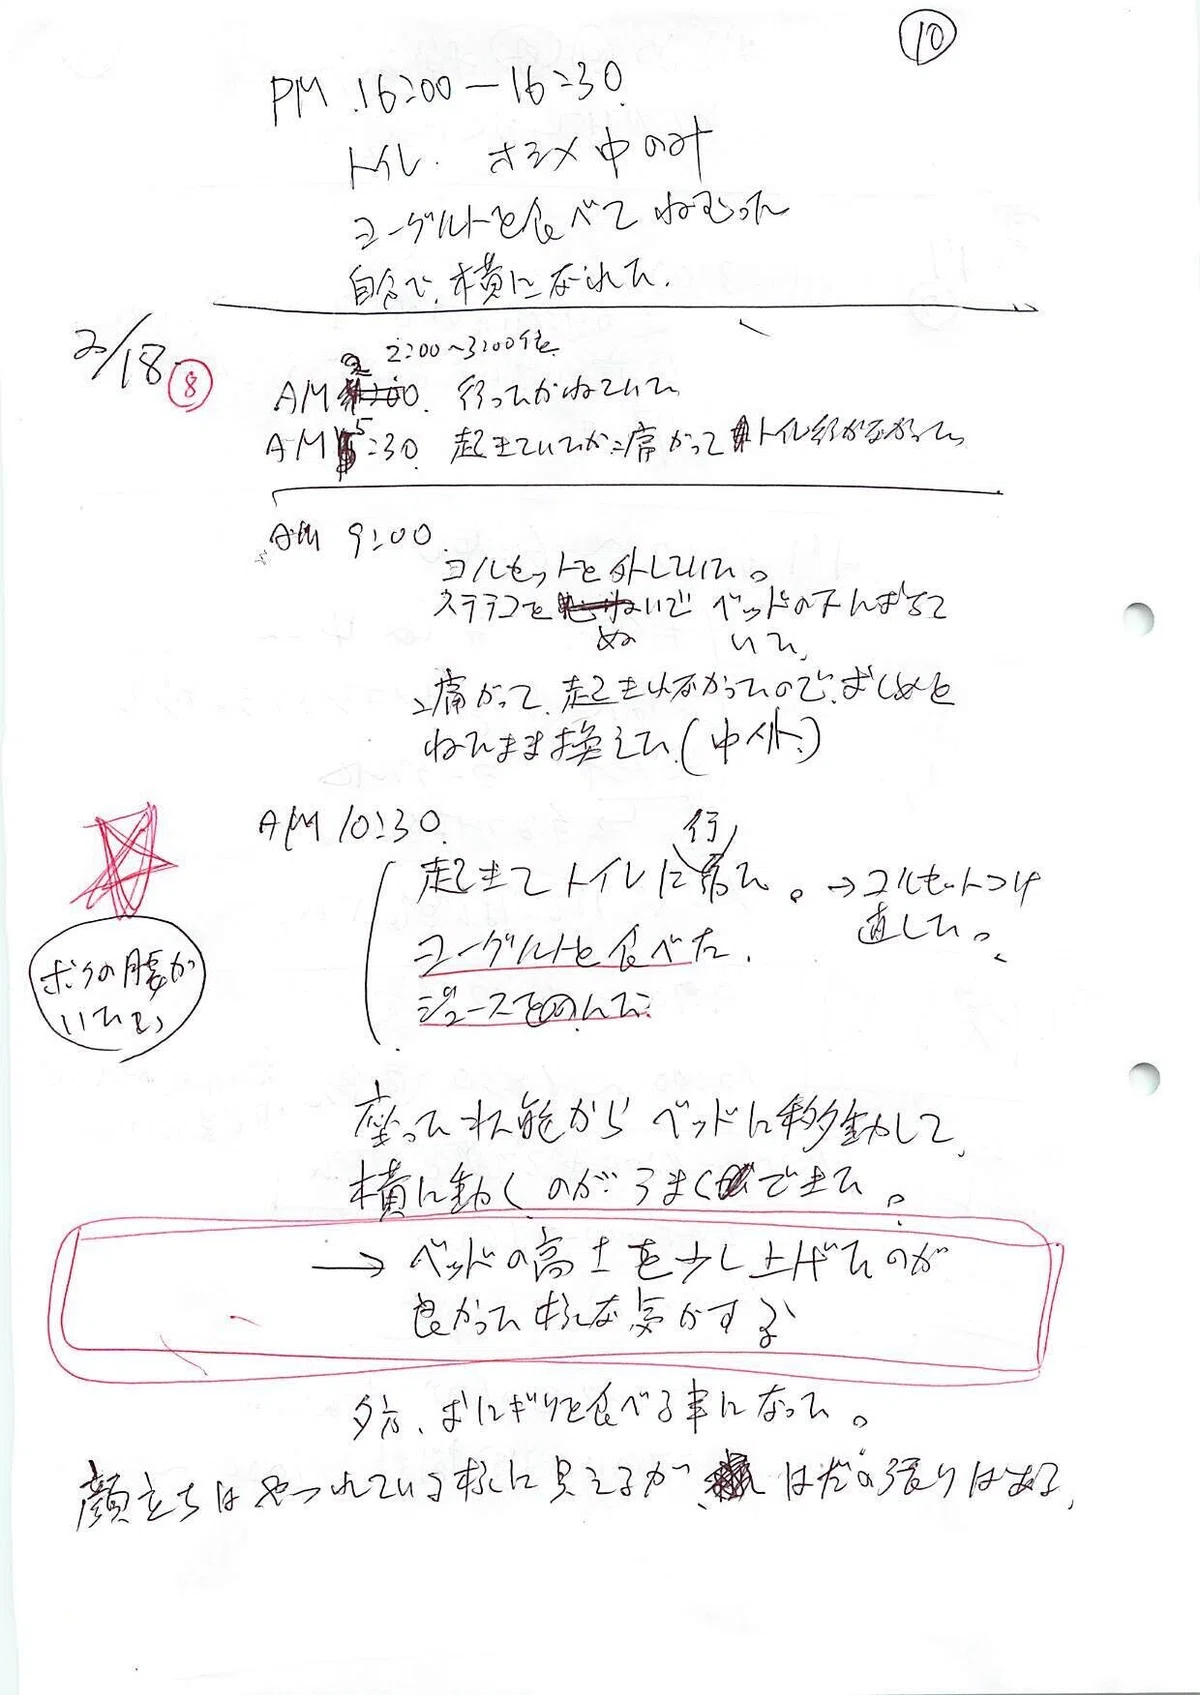 ⑩
PM 16:00ー16:30
トイレ. オシメ中のみ
ヨーグルトを食べてねむった
自分で、横になれた.
2/18 ⑧
2:00〜3:00位を
AM 2 行ったがねていた
AM 5:30 起きていたが痛がってトイレ行かなかった
AM 9:00
コルセットを外していた。
ステテコをぬいで ベッドの下んぽって
いた、
痛がって、起きれなかったので、おしめを
ねたまま換えた(中外)
AM 10:30
起きてトイレに行った。→コルセットつけ
直した。
ヨーグルトを食べた.
ジュースをのんだ
ボクの腰が
いたい
座った状態からベッドに移動して、
横に動くのがうまくできた。
→ベッドの高さを少し上げたのが
良かった様な気がする
夕方、おにぎりを食べる事になった。
顔立ちはやつれている様に見えるが、はだの張りはある、